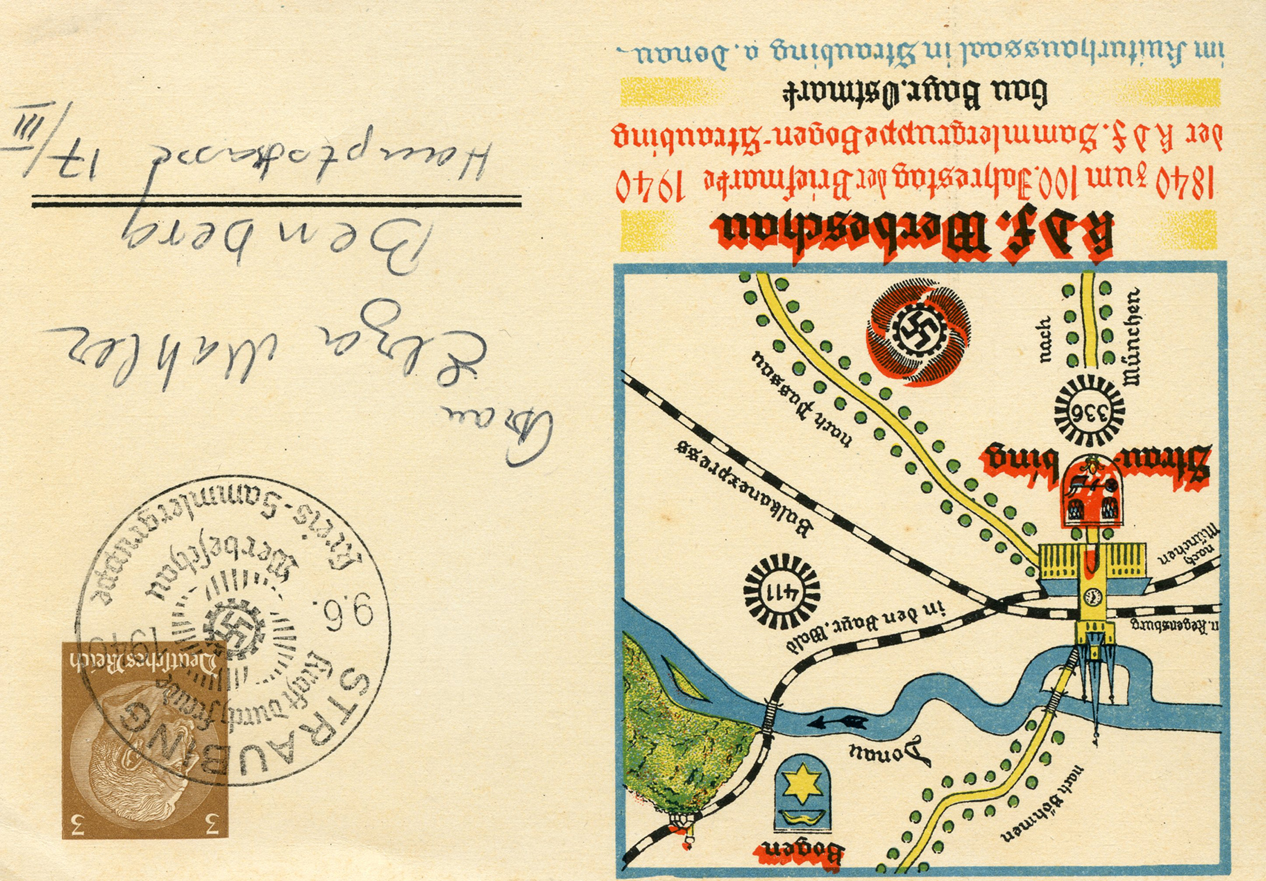 Bogen
nach Böhmen
Donau
n. Regensburg
in den Bayr. Wald
411
nach
München
Strau-
bing
Balkanexpress
nach Passau
336
nach
München
K d F. Werbeschau
1840 zum 100. Jahrestag der Briefmarke 1940
der K d F. Sammlergruppe Bogen-Straubing
Gau Bayr. Ostmark
im Kulturhaussaal in Straubing a. Donau.
3 3
Deutsches Reich
STRAUBING
Kraft durch Freude
9.6. 1940
Werbeschau
Kreis-Sammlergruppe
Frau
Elza Mahler
Benberg
Hauptstrasse 17/III